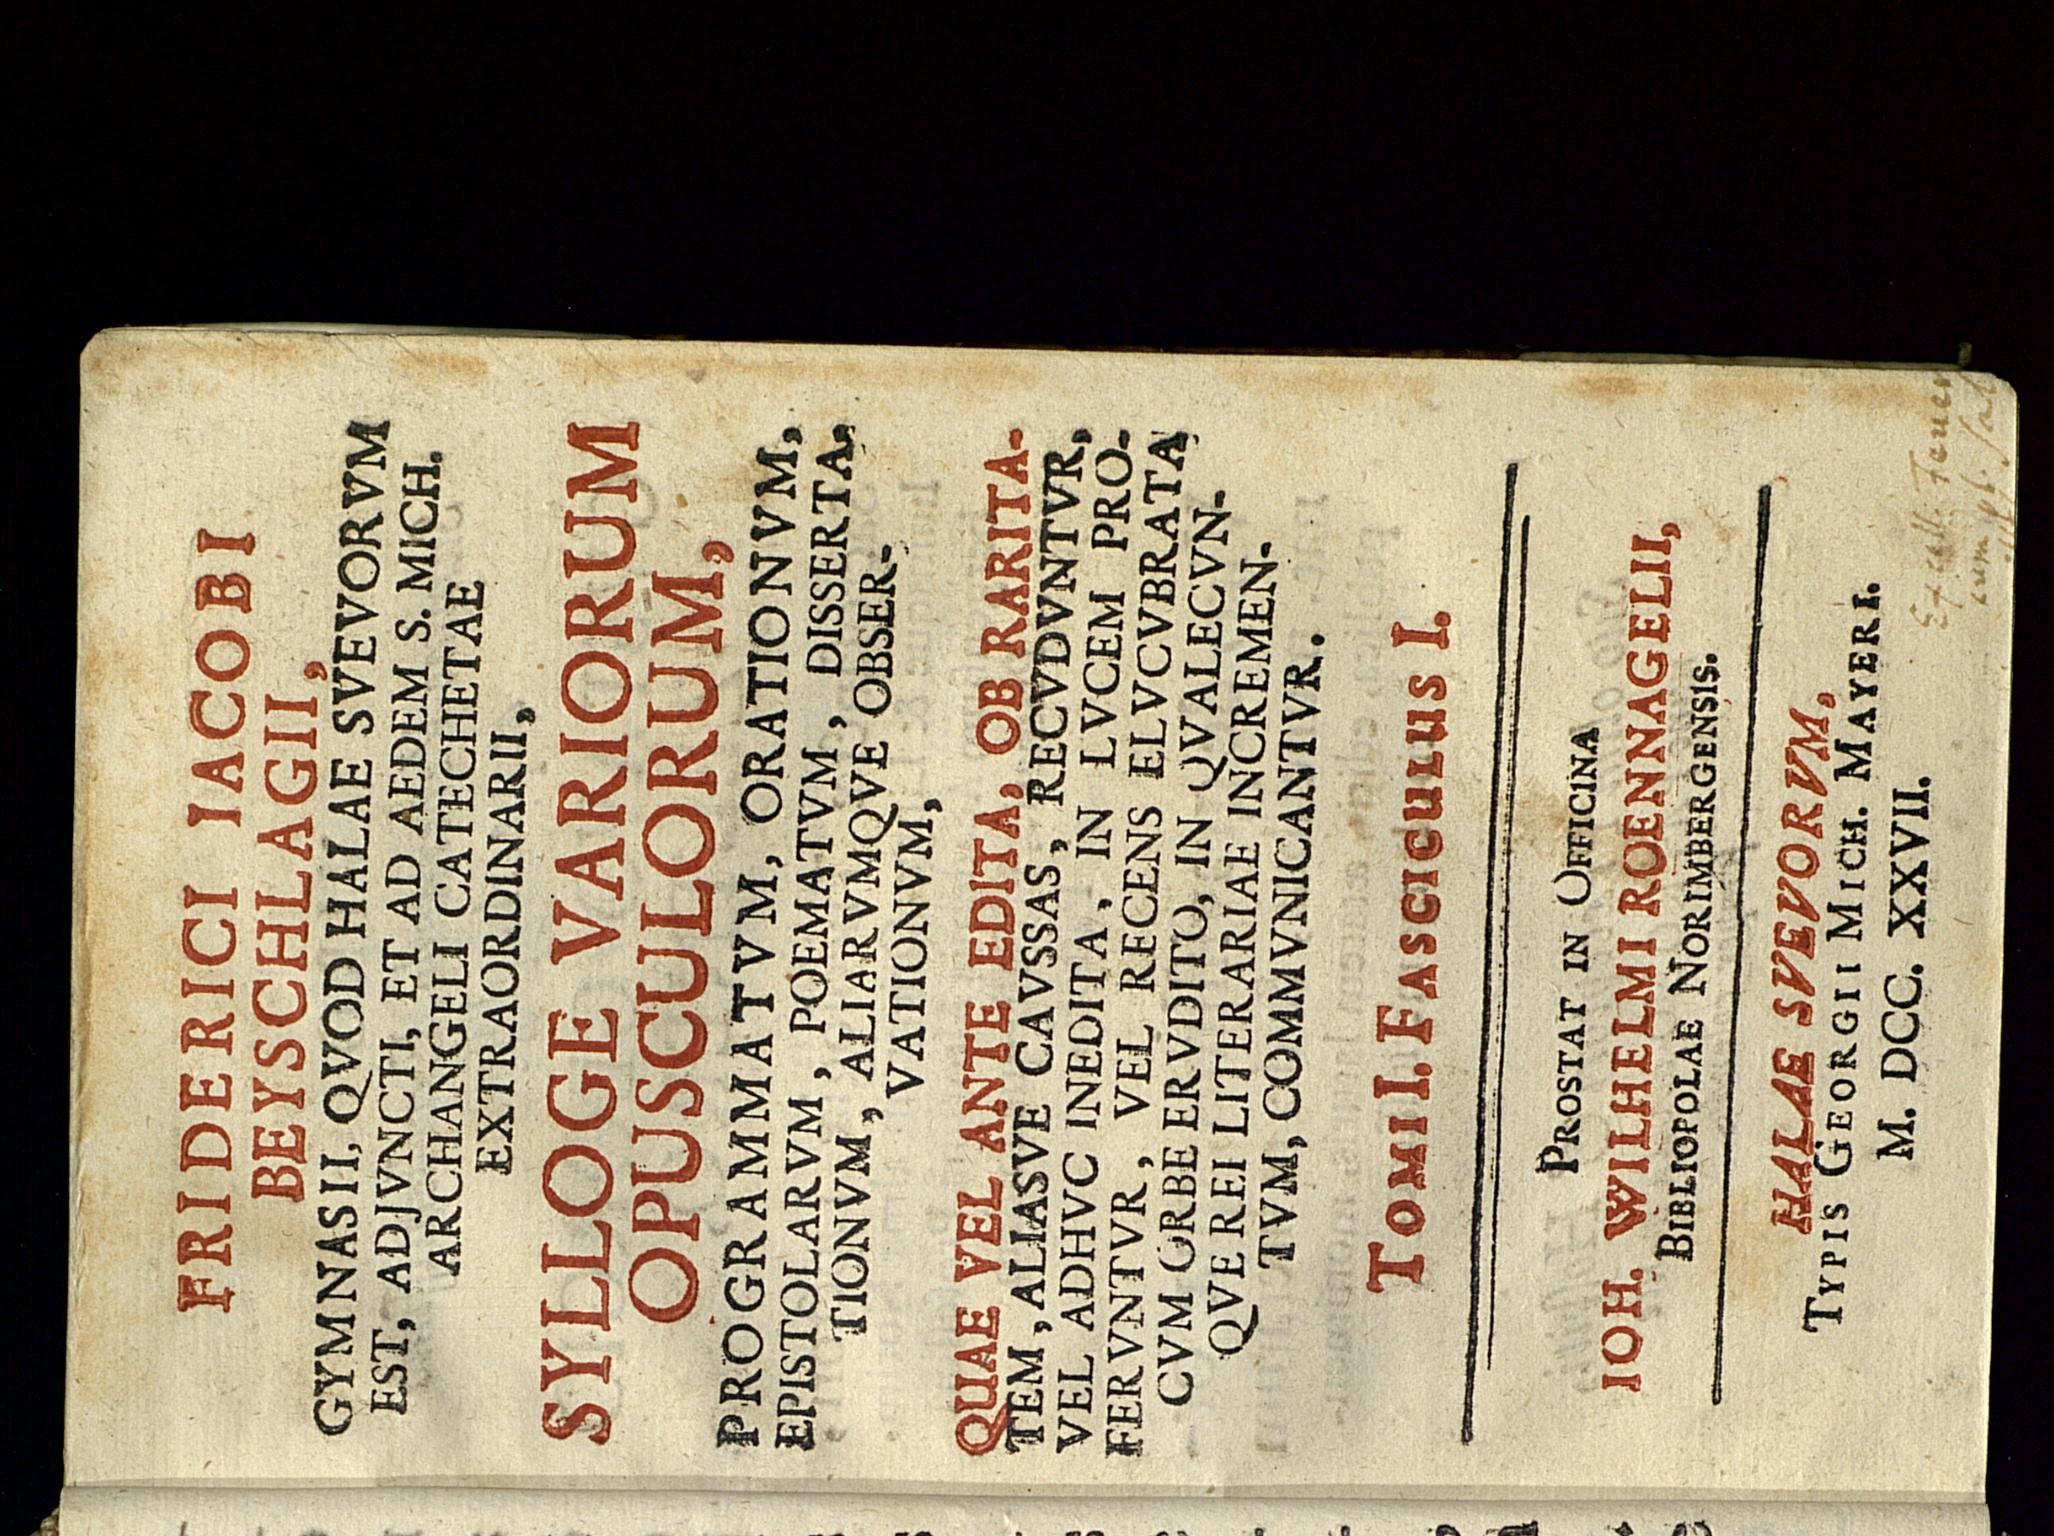 FRIDERICI IACOBI
BEYSCHLAGII,
GYMNASII, QVOD HALAE SVEVORVM
EST, ADJVNCTI, ET AD AEDEM S. MICH.
ARCHANGELI CATECHETAE
EXTRAORDINARII,
SYLLOGE VARIORUM
OPUSCULORUM,
PROGRAMMATVM, ORATIONVM,
EPISTOLARVM, POEMATVM, DISSERTA-
TIONVM, ALIARVMQVE OBSER-
VATIONVM,
QUAE VEL ANTE EDITA, OB RARITA-
TEM, ALIASVE CAVSSAS, RECVDVNTVR,
VEL ADHVC INEDITA, IN LVCEM PRO-
FERVNTVR, VEL RECENS ELVCVBRATA
CVM ORBE ERVDITO, IN QVALECVN-
QVE REI LITERARIAE INCREMEN-
TVM, COMMVNICANTVR.
TOMI I. FASCICULUS I.
PROSTAT IN OFFICINA
IOH. WILHELMI ROENNAGELII,
BIBLIOPOLAE NORIMBERGENSIS.
HALAE SVEVORVM,
TYPIS GEORGII MICH. MAYERI.
M. DCC. XXVII.